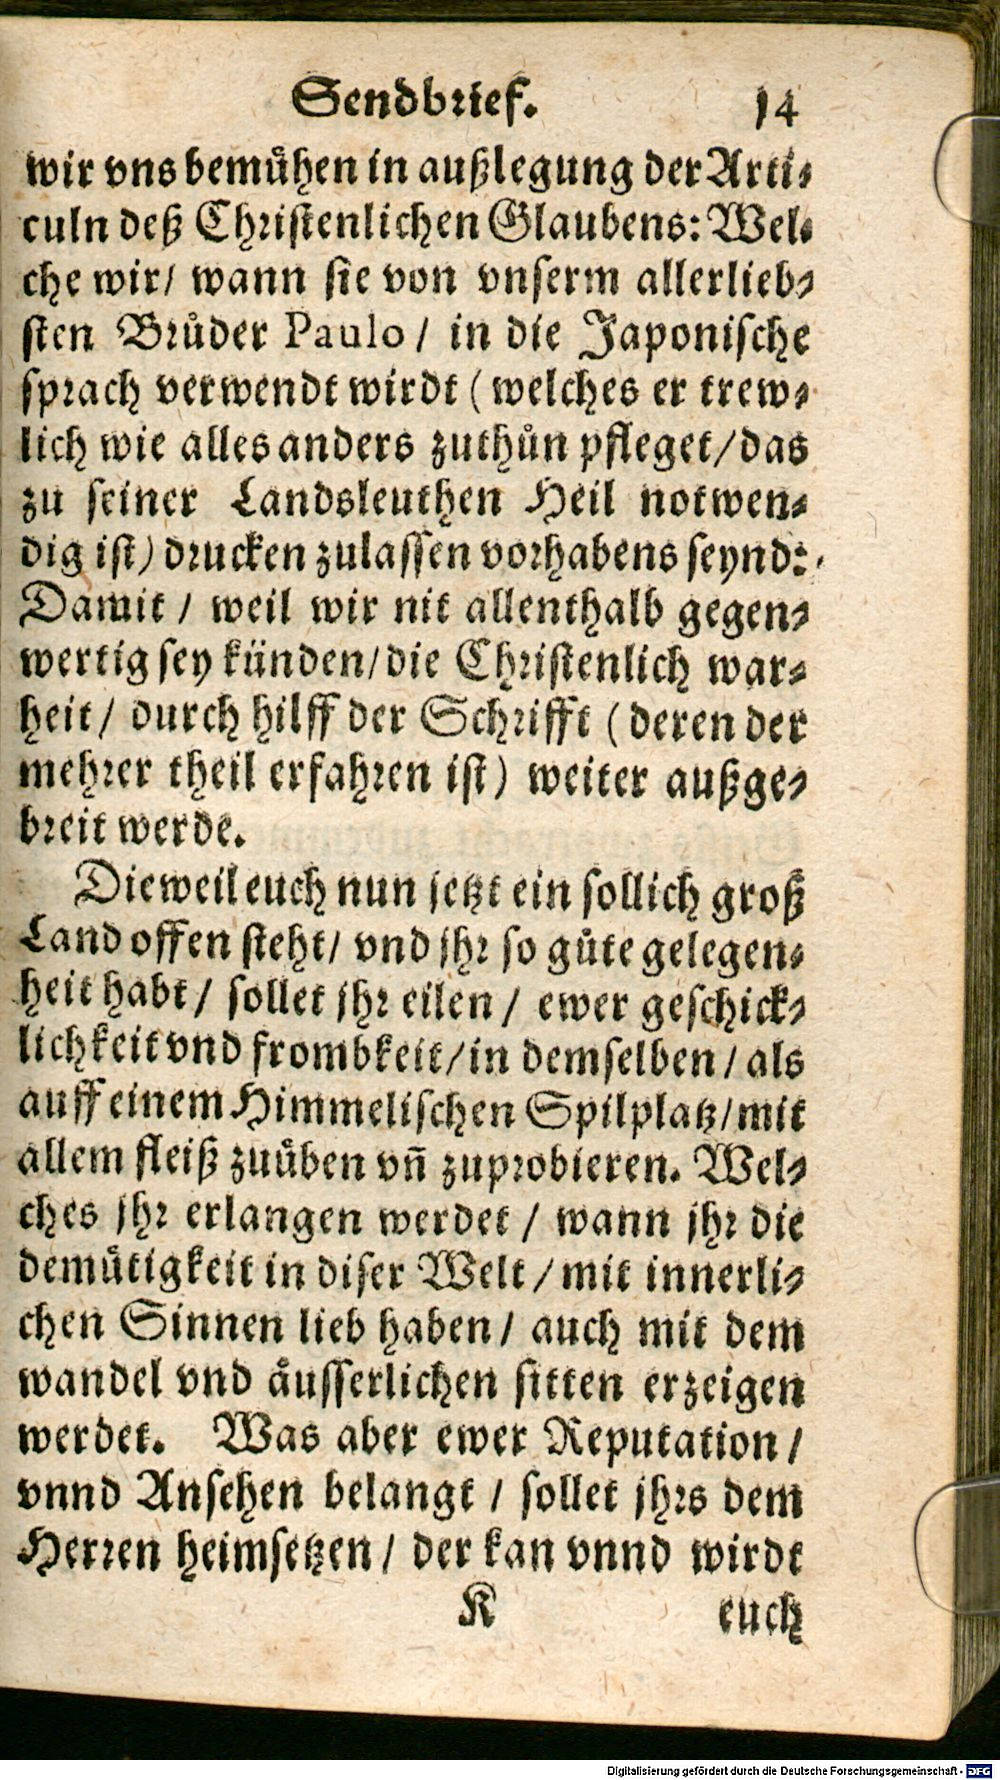 Sendbrief. 14
wir vns bemühen in außlegung der Arti-
culn deß Christenlichen Glaubens: Wel-
che wir/ wann sie von vnserm allerlieb-
sten Brůder Paulo / in die Japonische
sprach verwendt wirdt ( welches er trew-
lich wie alles anders zuthůn pfleget/das
zu seiner Landsleuthen Heil notwen-
dig ist) drucken zulassen vorhabens seynd:
Damit / weil wir nit allenthalb gegen-
wertig sey künden/die Christenlich war-
heit / durch hilff der Schrifft ( deren der
mehrer theil erfahren ist) weiter außge-
breit werde.
Dieweil euch nun jetzt ein sollich groß
Land offen steht/ vnd jhr so gůte gelegen-
heit habt / sollet jhr eilen / ewer geschick-
lichkeit vnd frombkeit/in demselben / als
auff einem Himmelischen Spilplatz/mit
allem fleiß zuüben vñ zuprobieren. Wel-
ches jhr erlangen werdet / wann jhr die
demütigkeit in diser Welt / mit innerli-
chen Sinnen lieb haben / auch mit dem
wandel vnd äusserlichen sitten erzeigen
werdet. Was aber ewer Reputation /
vnnd Ansehen belangt / sollet jhrs dem
Herren heimsetzen / der kan vnnd wirdt
K euch
Digitalisierung gefördert durch die Deutsche Forschungsgemeinschaft - DFG